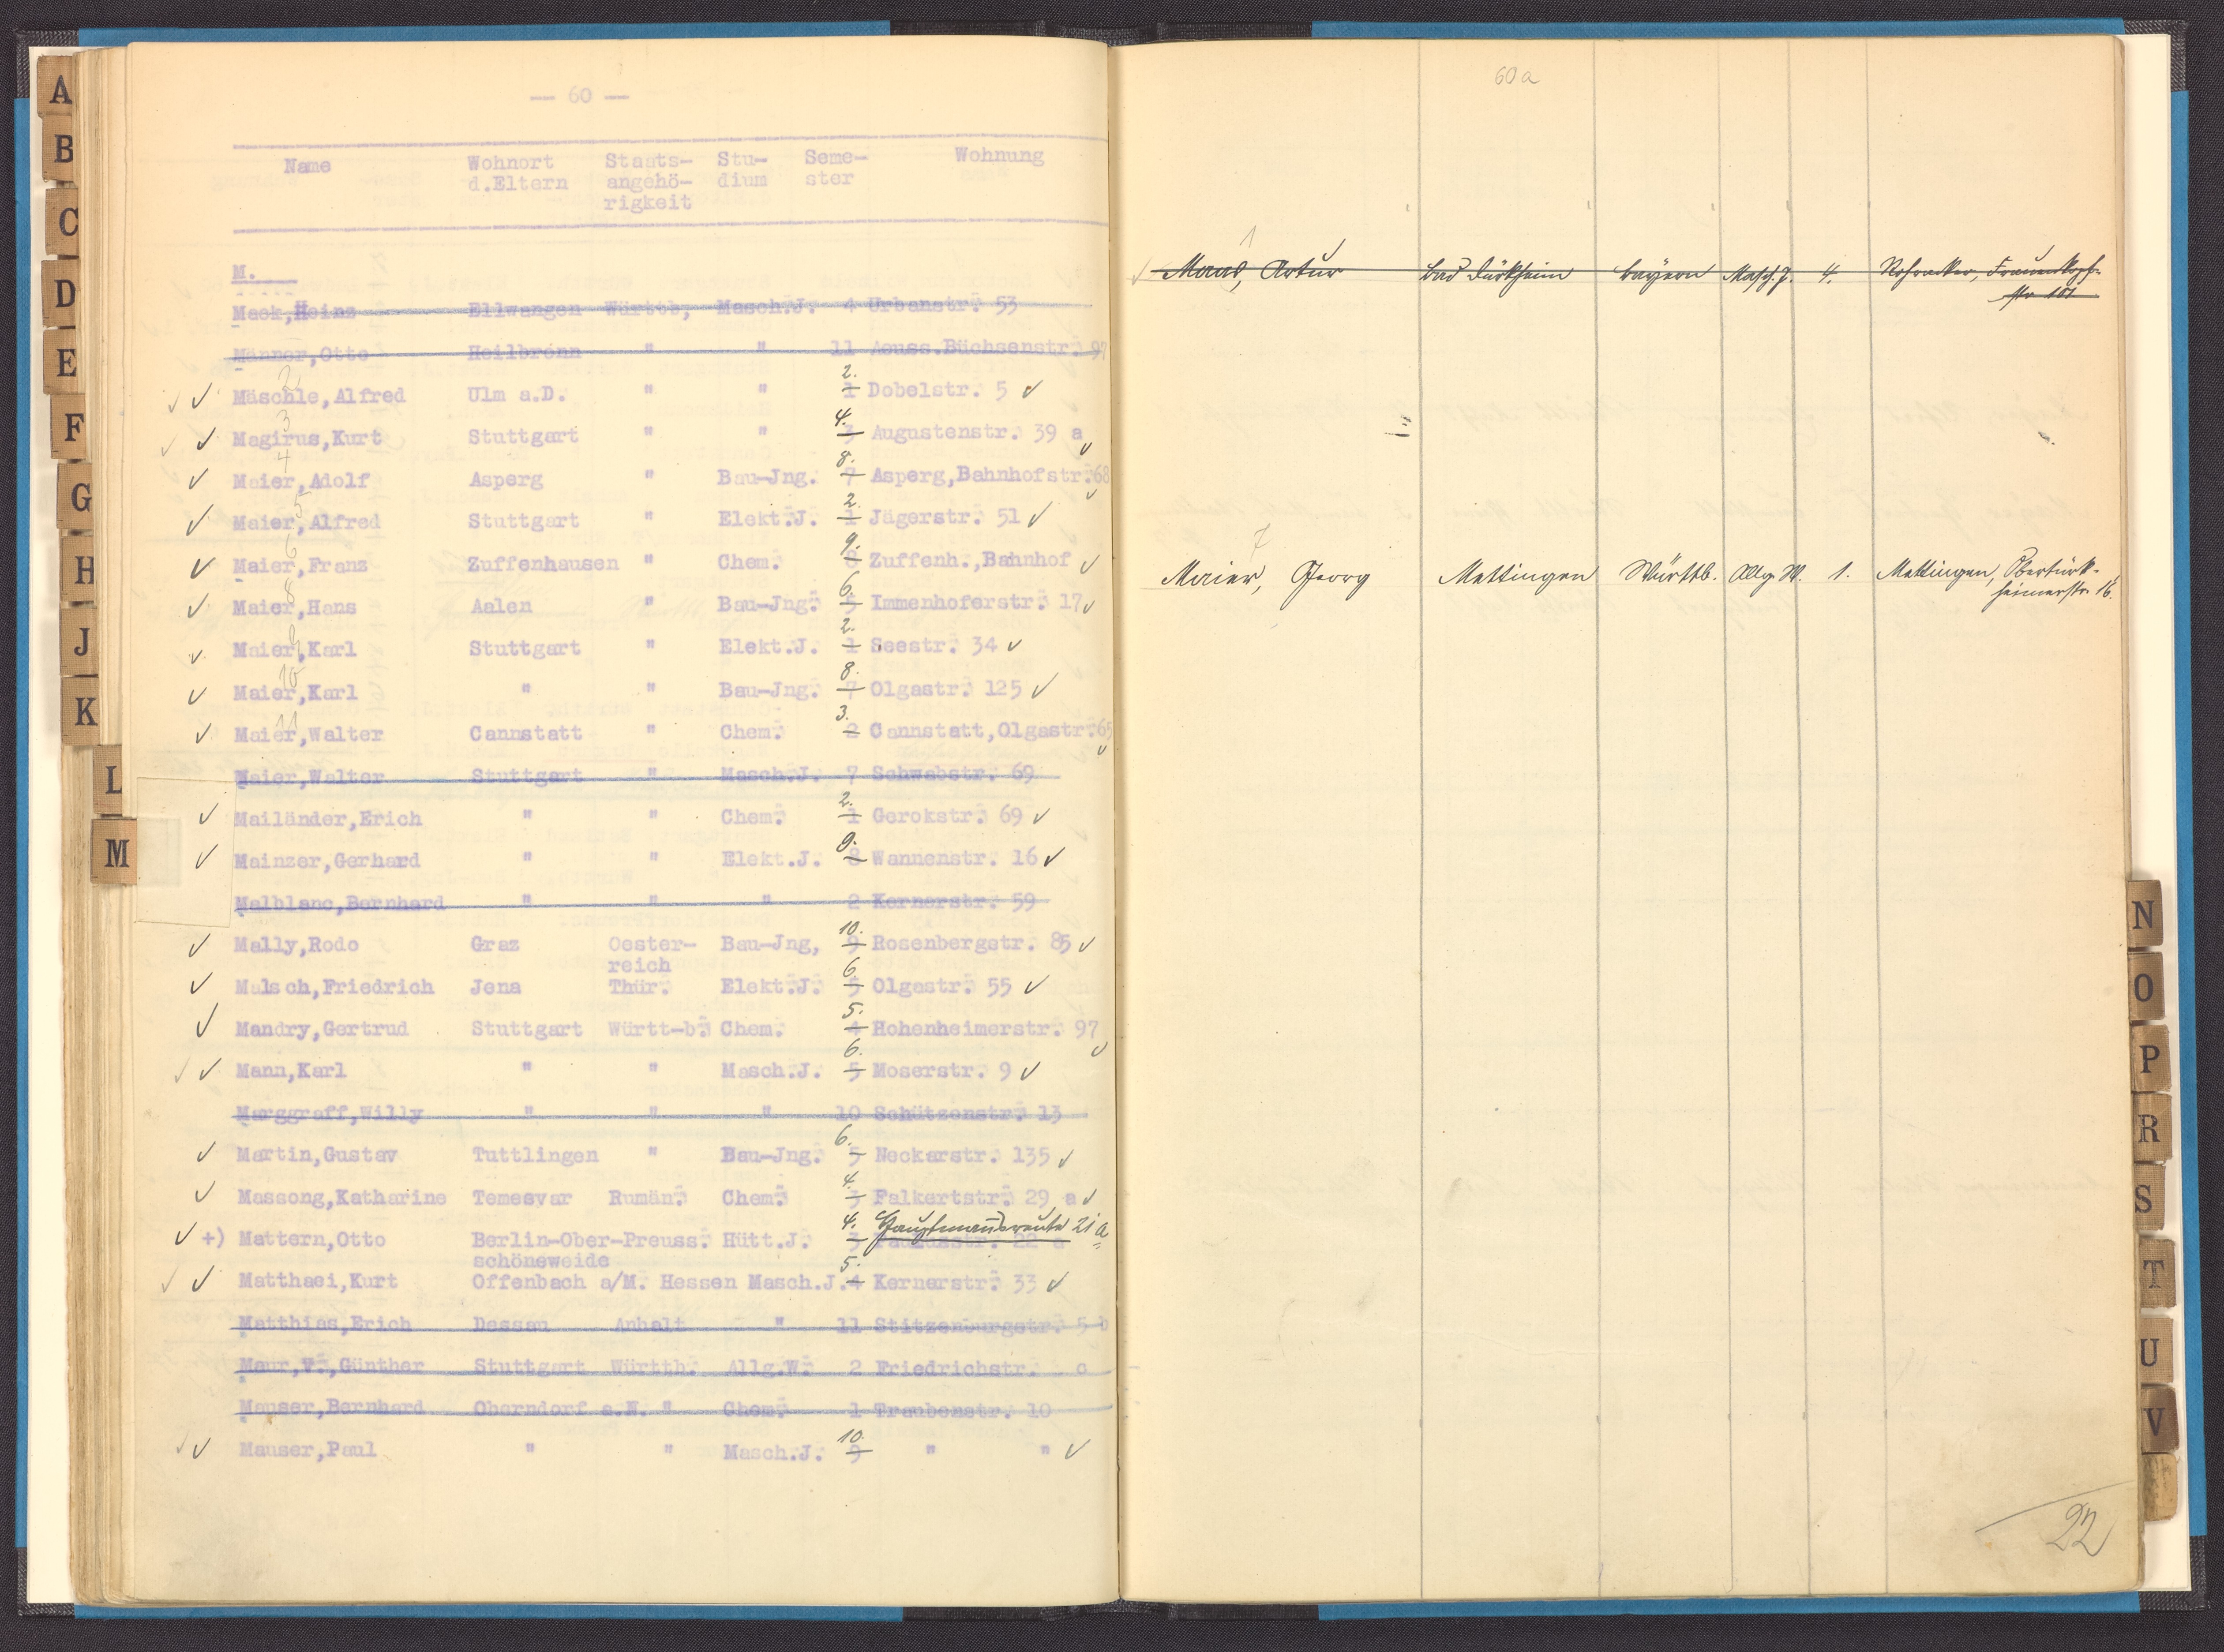 — 60 —
Name Wohnort d.Eltern Staats-angehö-rigkeit Stu-dium Seme-ster Wohnung
M.
Mack,Heinz Ellwangen Württb, Masch.J. 4 Urbanstr. 53
Männer,Otto Heilbronn " " 11 Aeuss.Büchsenstr. 97
2 ✓ ✓ Mäschle,Alfred Ulm a.D. " " 1 2. Dobelstr. 5 ✓
3 ✓ ✓ Magirus,Kurt Stuttgart " " 3 4. Augustenstr. 39 a ✓
4 ✓ Maier,Adolf Asperg " Bau-Jng. 7 8. Asperg,Bahnhofstr.68 ✓
5 ✓ Maier,Alfred Stuttgart " Elekt.J. 1 2. Jägerstr. 51 ✓
6 ✓ Maier,Franz Zuffenhausen " Chem. 8 9. Zuffenh.,Bahnhof ✓
8 ✓ Maier,Hans Aalen " Bau-Jng. 5 6. Immenhoferstr. 17 ✓
9 ✓ Maier,Karl Stuttgart " Elekt.J. 1 2. Seestr. 34 ✓
10 ✓ Maier,Karl " " Bau-Jng. 7 8. Olgastr. 125 ✓
11 ✓ Maier,Walter Cannstatt " Chem. 2 3. Cannstatt,Olgastr.65 ✓
Maier,Walter Stuttgart " Masch.J. 7 Schwabstr. 69
✓ Mailänder,Erich " " Chem. 1 2. Gerokstr. 69 ✓
✓ Mainzer,Gerhard " " Elekt.J. 8 9. Wannenstr. 16 ✓
Malblanc,Bernhard " " " 2 Kernerstr. 59
✓ Mally,Rodo Graz Oester-reich Bau-Jng, 9 10. Rosenbergstr. 85 ✓
✓ Malsch,Friedrich Jena Thür. Elekt.J. 5 6. Olgastr. 55 ✓
✓ Mandry,Gertrud Stuttgart Württ-b. Chem. 4 5. Hohenheimerstr. 97 ✓
✓ ✓ Mann,Karl " " Masch.J. 5 6. Moserstr. 9 ✓
Marggraff,Willy " " " 10 Schützenstr. 13
✓ Martin,Gustav Tuttlingen " Bau-Jng. 5 6. Neckarstr. 135 ✓
✓ Massong,Katharine Temesvar Rumän. Chem. 3 4. Falkertstr. 29 a ✓
✓ +) Mattern,Otto Berlin-Ober-schöneweide Preuss. Hütt.J. 3 4. Hauptmannsreute 21 a
✓ ✓ Matthaei,Kurt Offenbach a/M. Hessen Masch.J. 4 5. Kernerstr. 33 ✓
Matthias,Erich Dessau Anhalt " 11 Stitzenburgstr. 5 b
Maur,v.,Günther Stuttgart Württb. Allg.W. 2 Friedrichstr. c
Mauser,Bernhard Oberndorf a.N. " Chem. 1 Traubenstr. 10
✓ ✓ Mauser,Paul " " Masch.J. 9 10. " " ✓
60a
1 ✓ Artur Bad Dürkheim Bayern Masch. J. 4. Rohracker, Frauenkopf-
str 101
7
Maier, Georg Mettingen Württb. Allg. W. 1. Mettingen, Obertürk-
heimerstr 16.
22
A
B
C
D
E
F
G
H
J
K
L
M
N
O
P
R
S
T
U
V